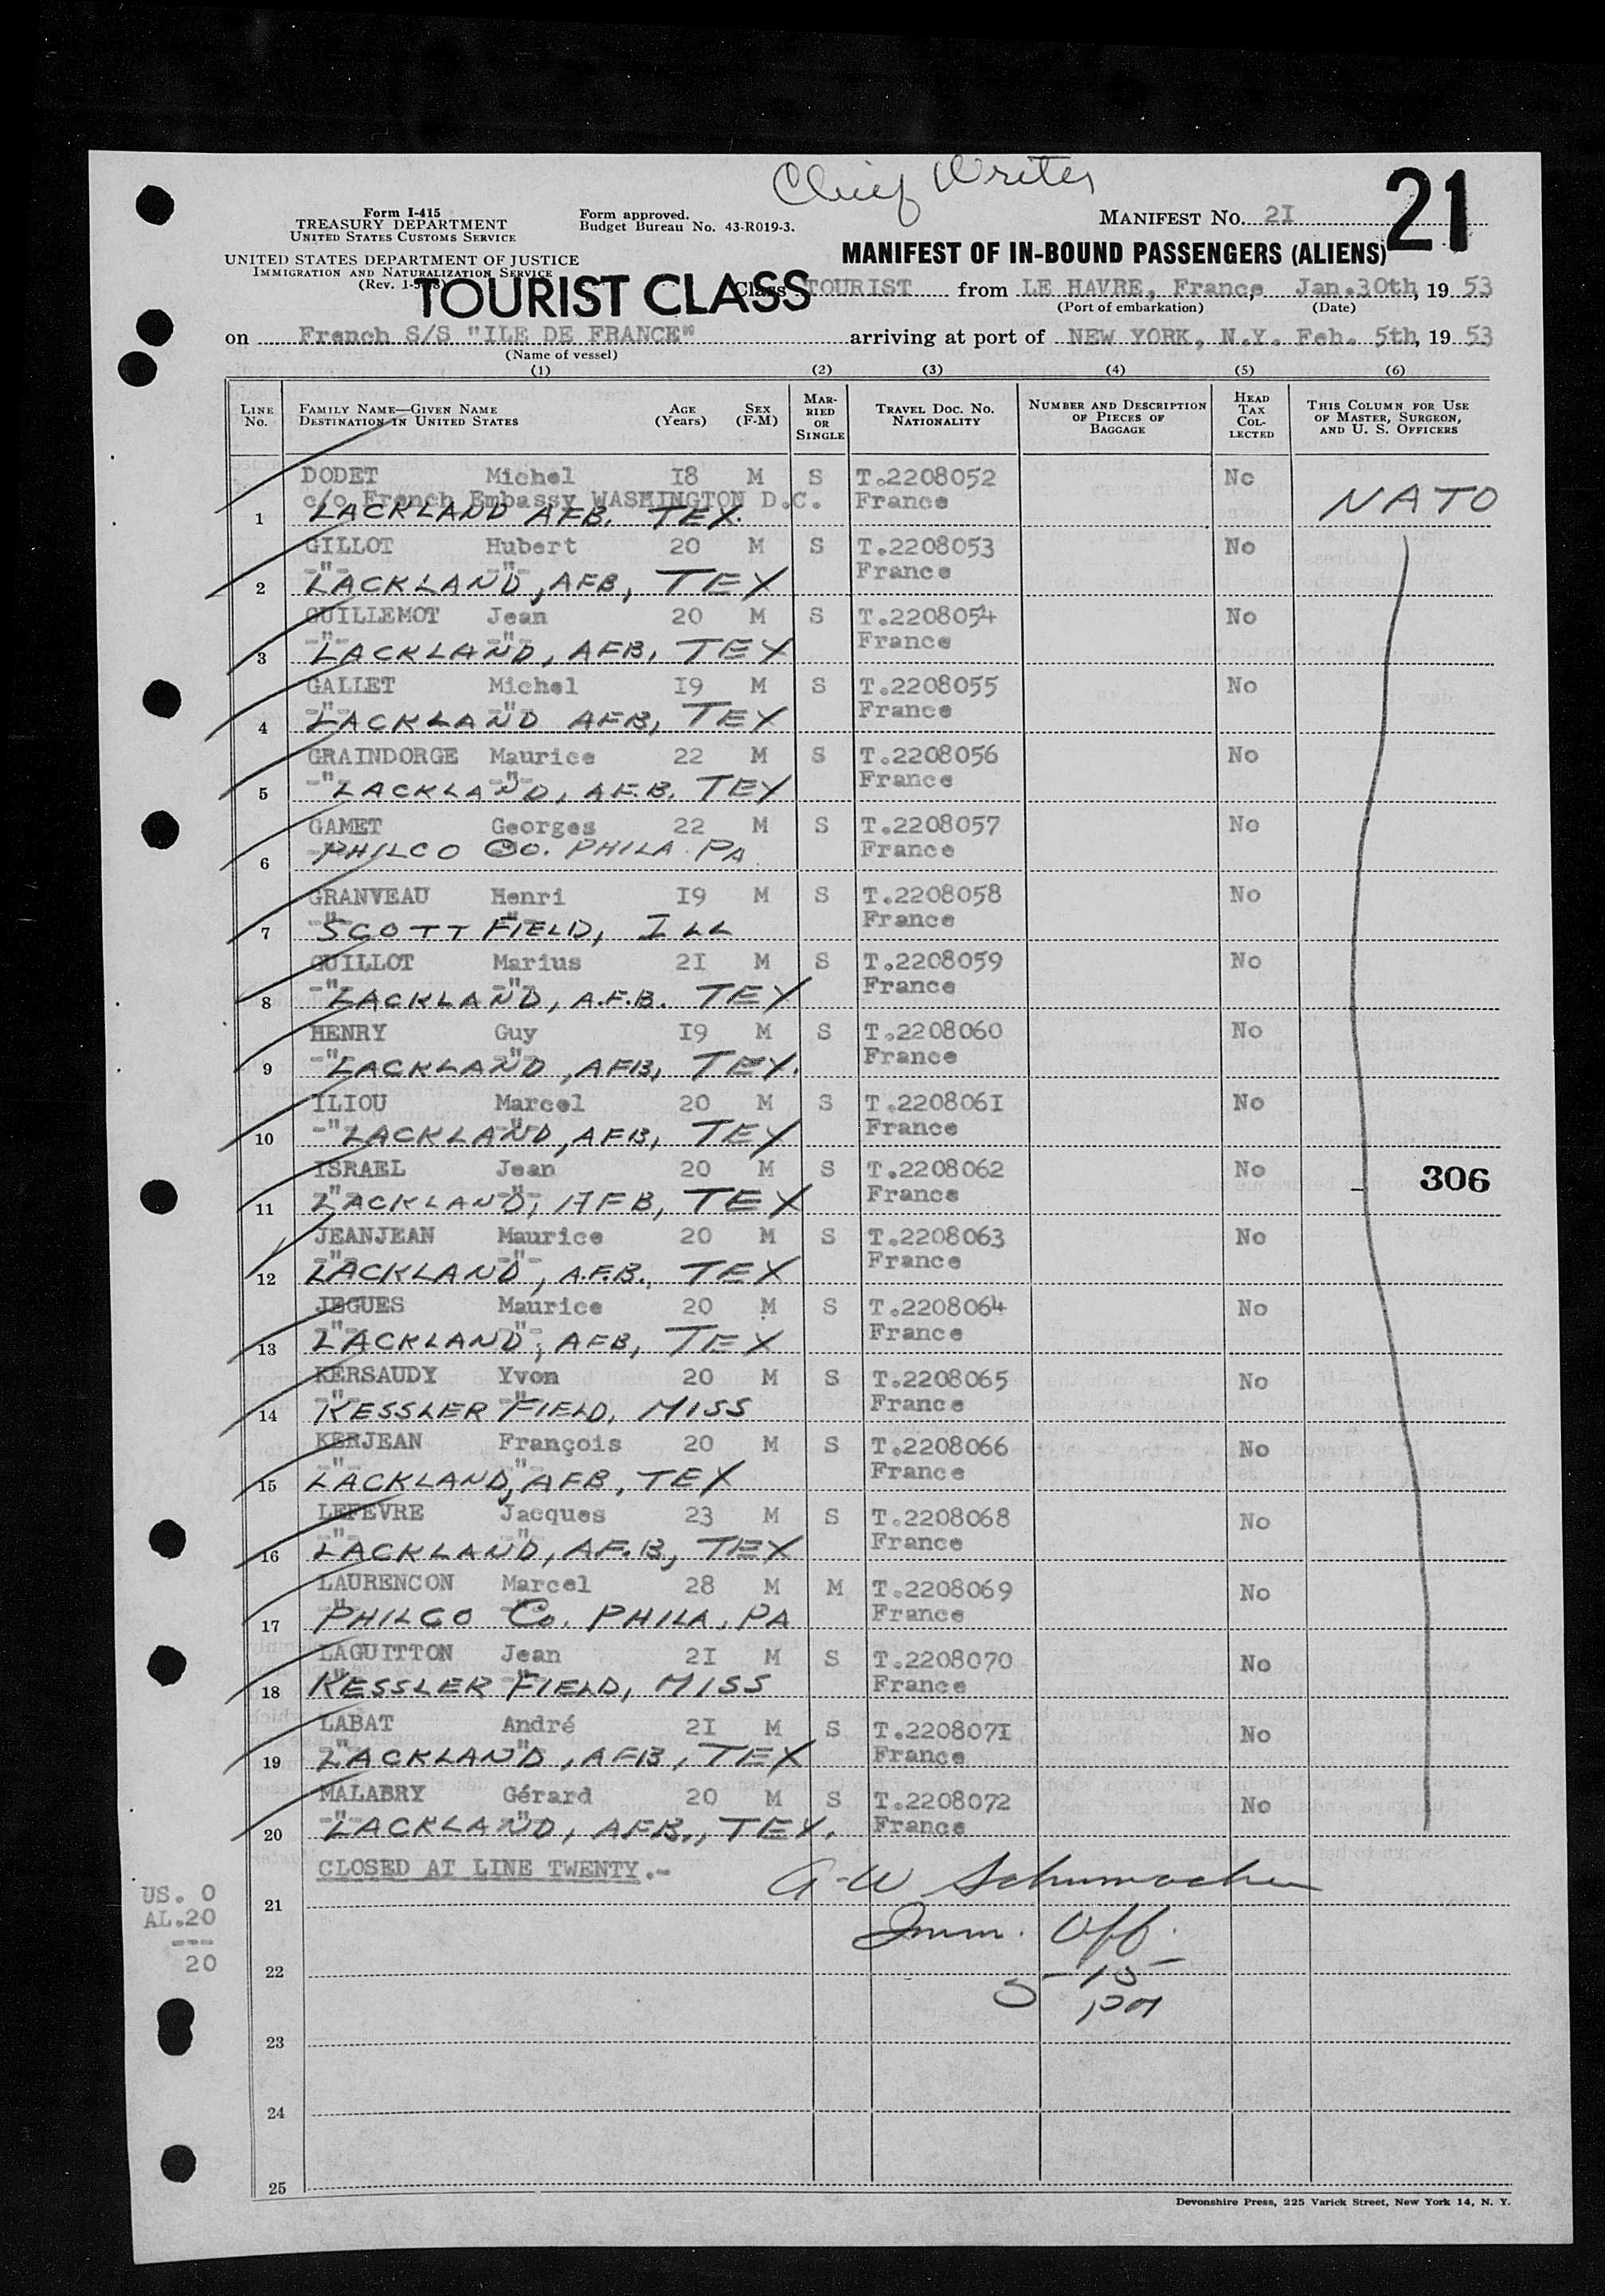 Chief Writer
21
Form I-415
TREASURY DEPARTMENT
UNITED STATES CUSTOMS SERVICE
Form approved.
Budget Bureau No. 43-R019-3.
MANIFEST NO. 2I
UNITED STATES DEPARTMENT OF JUSTICE
IMMIGRATION AND NATURALIZATION SERVICE
MANIFEST OF IN-BOUND PASSENGERS (ALIENS)
TOURIST CLASS
Class TOURIST from LE HAVRE, France, Jan.30th, 19 53
(Port of embarkation) (Date)
on French S/S "ILE DE FRANCE" arriving at port of NEW YORK, N.Y. Feb. 5th, 19 53
(Name of vessel)
(1) (2) (3) (4) (5) (6)
LINE No. FAMILY NAME—GIVEN NAME DESTINATION IN UNITED STATES AGE (Years) SEX (F-M) MARRIED OR SINGLE TRAVEL DOC. NO. NATIONALITY NUMBER AND DESCRIPTION OF PIECES OF BAGGAGE HEAD TAX COLLECTED THIS COLUMN FOR USE OF MASTER, SURGEON, AND U. S. OFFICERS
DODET Michel I8 M S T.2208052 No
c/o French Embassy WASHINGTON D.C. France NATO
1 LACKLAND AFB. TEX.
GILLOT Hubert 20 M S T.2208053 No
-"- -"- France
2 LACKLAND, AFB, TEX
GUILLEMOT Jean 20 M S T.2208054 No
-"- -"- France
3 LACKLAND, AFB, TEX
GALLET Michel I9 M S T.2208055 No
-"- -"- France
4 LACKLAND AFB, TEX
GRAINDORGE Maurice 22 M S T.2208056 No
-"- -"- France
5 LACKLAND, A.F.B. TEX
GAMET Georges 22 M S T.2208057 No
France
6 PHILCO Co. PHILA. PA
GRANVEAU Henri I9 M S T.2208058 No
-"- -"- France
7 SCOTT FIELD, ILL
GUILLOT Marius 2I M S T.2208059 No
-"- -"- France
8 LACKLAND, A.F.B. TEX
HENRY Guy I9 M S T.2208060 No
-"- -"- France
9 LACKLAND, AFB, TEX.
ILIOU Marcel 20 M S T.220806I No
-"- -"- France
10 LACKLAND, AFB, TEX
ISRAEL Jean 20 M S T.2208062 No 306
-"- -"- France
11 LACKLAND, AFB, TEX
JEANJEAN Maurice 20 M S T.2208063 No
-"- -"- France
12 LACKLAND, A.F.B., TEX
JEGUES Maurice 20 M S T.2208064 No
-"- -"- France
13 LACKLAND, AFB, TEX
KERSAUDY Yvon 20 M S T.2208065 No
-"- -"- France
14 KESSLER FIELD, MISS
KERJEAN François 20 M S T.2208066 No
-"- -"- France
15 LACKLAND, AFB, TEX
LEFEVRE Jacques 23 M S T.2208068 No
-"- -"- France
16 LACKLAND, A.F.B, TEX
LAURENCON Marcel 28 M M T.2208069 No
France
17 PHILCO Co. PHILA, PA
LAGUITTON Jean 2I M S T.2208070 No
-"- -"- France
18 KESSLER FIELD, MISS
LABAT André 2I M S T.220807I No
-"- -"- France
19 LACKLAND, AFB, TEX
MALABRY Gérard 20 M S T.2208072 No
-"- -"- France
20 LACKLAND, AFB., TEX.
CLOSED AT LINE TWENTY.-
A-W Schumacher
US. 0
21
AL.20
Imm. Off.
---
20
22
5 15
pm
23
24
25
Devonshire Press, 225 Varick Street, New York 14, N. Y.